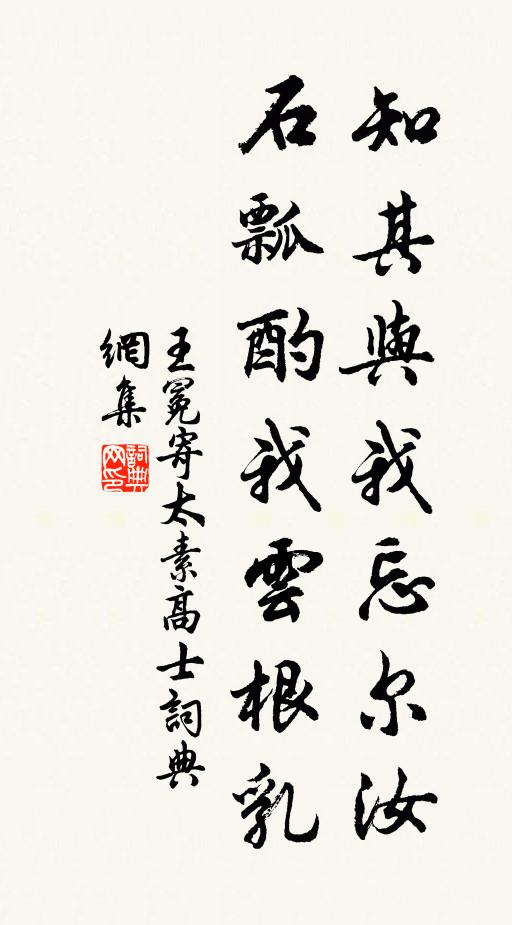 知其與我忘尔汝
石瓢酌我雲根乳
王冕寄太素高士詞典
網集
詞典
网印